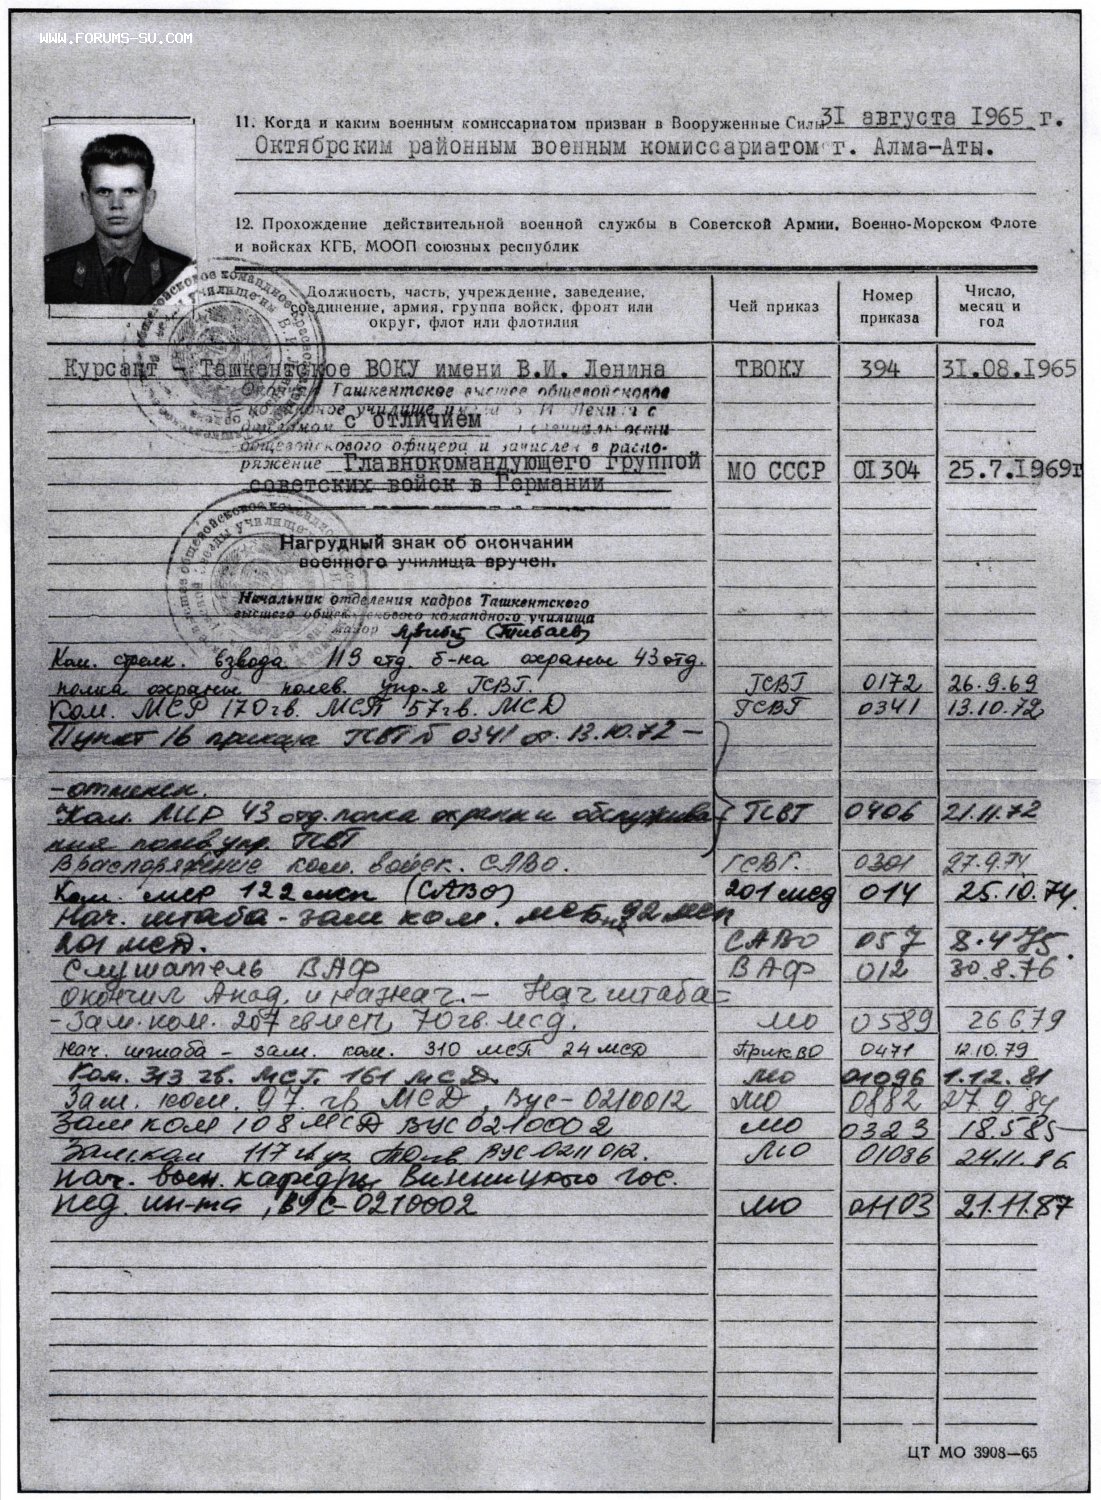 WWW.FORUMS-SU.COM
11. Когда и каким военным комиссариатом призван в Вооруженные Силы 31 августа 1965 г.
Октябрским районным военным комиссариатом г. Алма-Аты.
12. Прохождение действительной военной службы в Советской Армии, Военно-Морском Флоте
и войсках КГБ, МООП союзных республик
Должность, часть, учреждение, заведение,
соединение, армия, группа войск, фронт или
округ, флот или флотилия
Чей приказ
Номер
приказа
Число,
месяц и
год
Курсант - Ташкентское ВОКУ имени В.И. Ленина ТВОКУ 394 31.08.1965
Ташкентское высшее общевойсковое
училище
с отличием
общевойскового офицера и зачислен в распо-
ряжение Главнокомандующего группой МО СССР 01304 25.7.1969г
советских войск в Германии
Нагрудный знак об окончании
военного училища вручен.
Начальник отделения кадров Ташкентского
высшего общевойскового командного училища
майор
Ком. стрелк. взвода 119 отд. б-на охраны 43 отд.
полка охраны полев. упр-я ГСВГ. ГСВГ 0172 26.9.69
Ком. МСР 170 гв. МСП 57 гв. МСД ГСВГ 0341 13.10.72
Пункт 16 приказа ГСВГ 0341 от 13.10.72 -
- отменен.
Ком. МСР 43 отд. полка охраны и обслужива- ГСВГ 0406 21.11.72
ния полев. упр. ГСВГ
В распоряжение ком. войск. САВО. ГСВГ. 0301 27.9.74
Ком. мср 122 мсп (САВО) 201 мсд 014 25.10.74.
Нач. штаба - зам ком. мсб 92 мсп
201 мсд. САВО 057 8.4.75.
Слушатель ВАФ ВАФ 012 30.8.76
окончил Акад. и назнач. - Нач штаба-
- Зам. ком. 207 гв мсп, 70 гв. мсд. МО 0589 26.6.79
Нач. штаба - зам. ком. 310 МСП 24 МСД ПрикВО 0471 12.10.79
Ком. 313 гв. МСП. 161 МСД. МО 01096 1.12.81
Зам. ком. 97 гв МСД, ВУС-0210012 МО 0882 27.9.84
Зам ком 108 МСД ВУС 0210002 МО 0323 18.5.85
Зам. ком 117 ВУС 0211012. МО 01086 24.11.86
нач. воен. кафедры Винницкого гос.
пед. ин-та, ВУС-0210002 МО 01103 21.11.87
ЦТ МО 3908—65